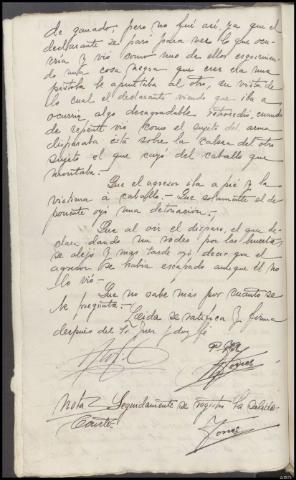 de ganado, pero no fué así, ya que el
declarante se paró para ver lo que ocu-
rria y vió como uno de ellos esgrimien-
do una cosa negra que cree era una
pistola le apuntaba al otro, en vista de
lo cual el declarante viendo que iba a
ocurrir algo desagradable retrocedio, cuando
de repente vió como el sujeto del arma
disparaba esta sobre la cabeza del otro
sujeto el que cayó del caballo que
montaba.-
Que el agresor iba a pié y la
victima á caballo.- Que solamente el de-
ponente oyó una detonacion.-
Que al oir el disparo, el que de-
clara dando un rodeo por las huertas
se alejó y mas tarde oyó decir que el
agresor se habia escapado aunque él no
lo vió.-
Que no sabe mas por cuanto se
le pregunta.-
Leida se ratifica y firma
despues del Sr Juez, doy fé
Nota Seguidamente se